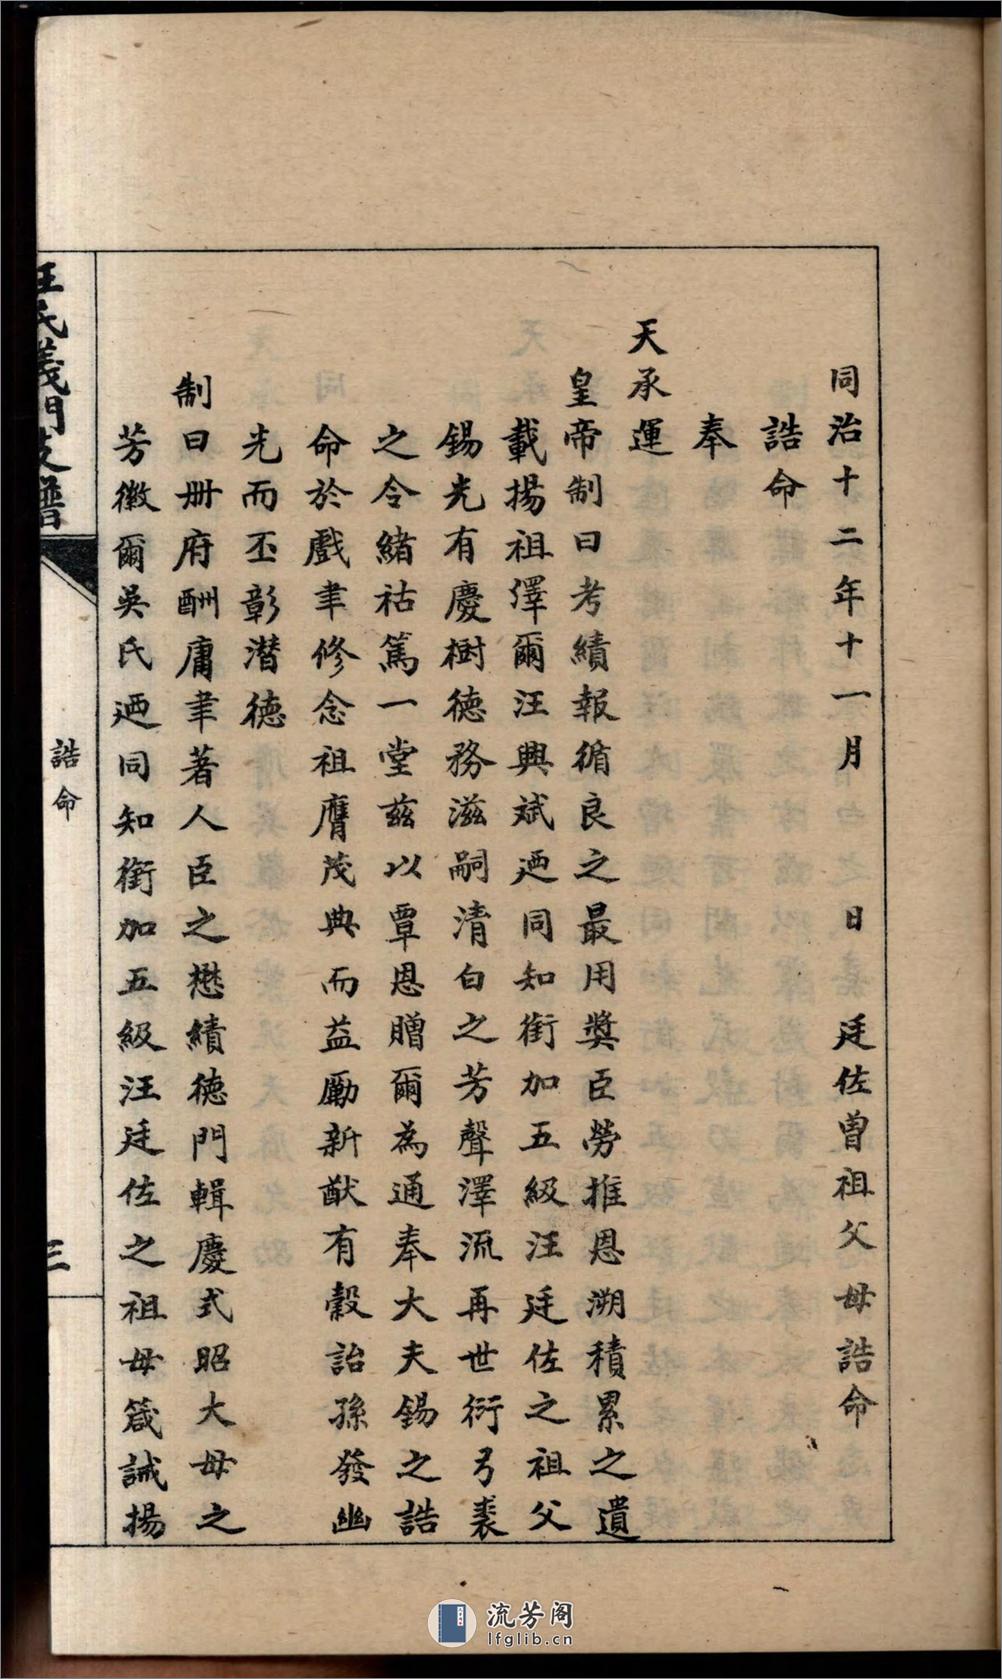 同治十二年十一月　日　廷佐曾祖父母誥命
誥命
奉
天承運
皇帝制曰考績報循良之最用獎臣勞推恩溯積累之遺
載揚祖澤爾汪興斌迺同知銜加五級汪廷佐之祖父
錫光有慶樹德務滋嗣清白之芳聲澤流再世衍弓裘
之令緒祜篤一堂茲以覃恩贈爾為通奉大夫錫之誥
命於戲聿修念祖膺茂典而益勵新猷有穀詒孫發幽
光而丕彰潛德
制曰冊府酬庸聿著人臣之懋績德門輯慶式昭大母之
芳徽爾吳氏迺同知銜加五級汪廷佐之祖母箴誡揚
汪氏義門支譜
誥命
三
流芳阁
lfglib.cn